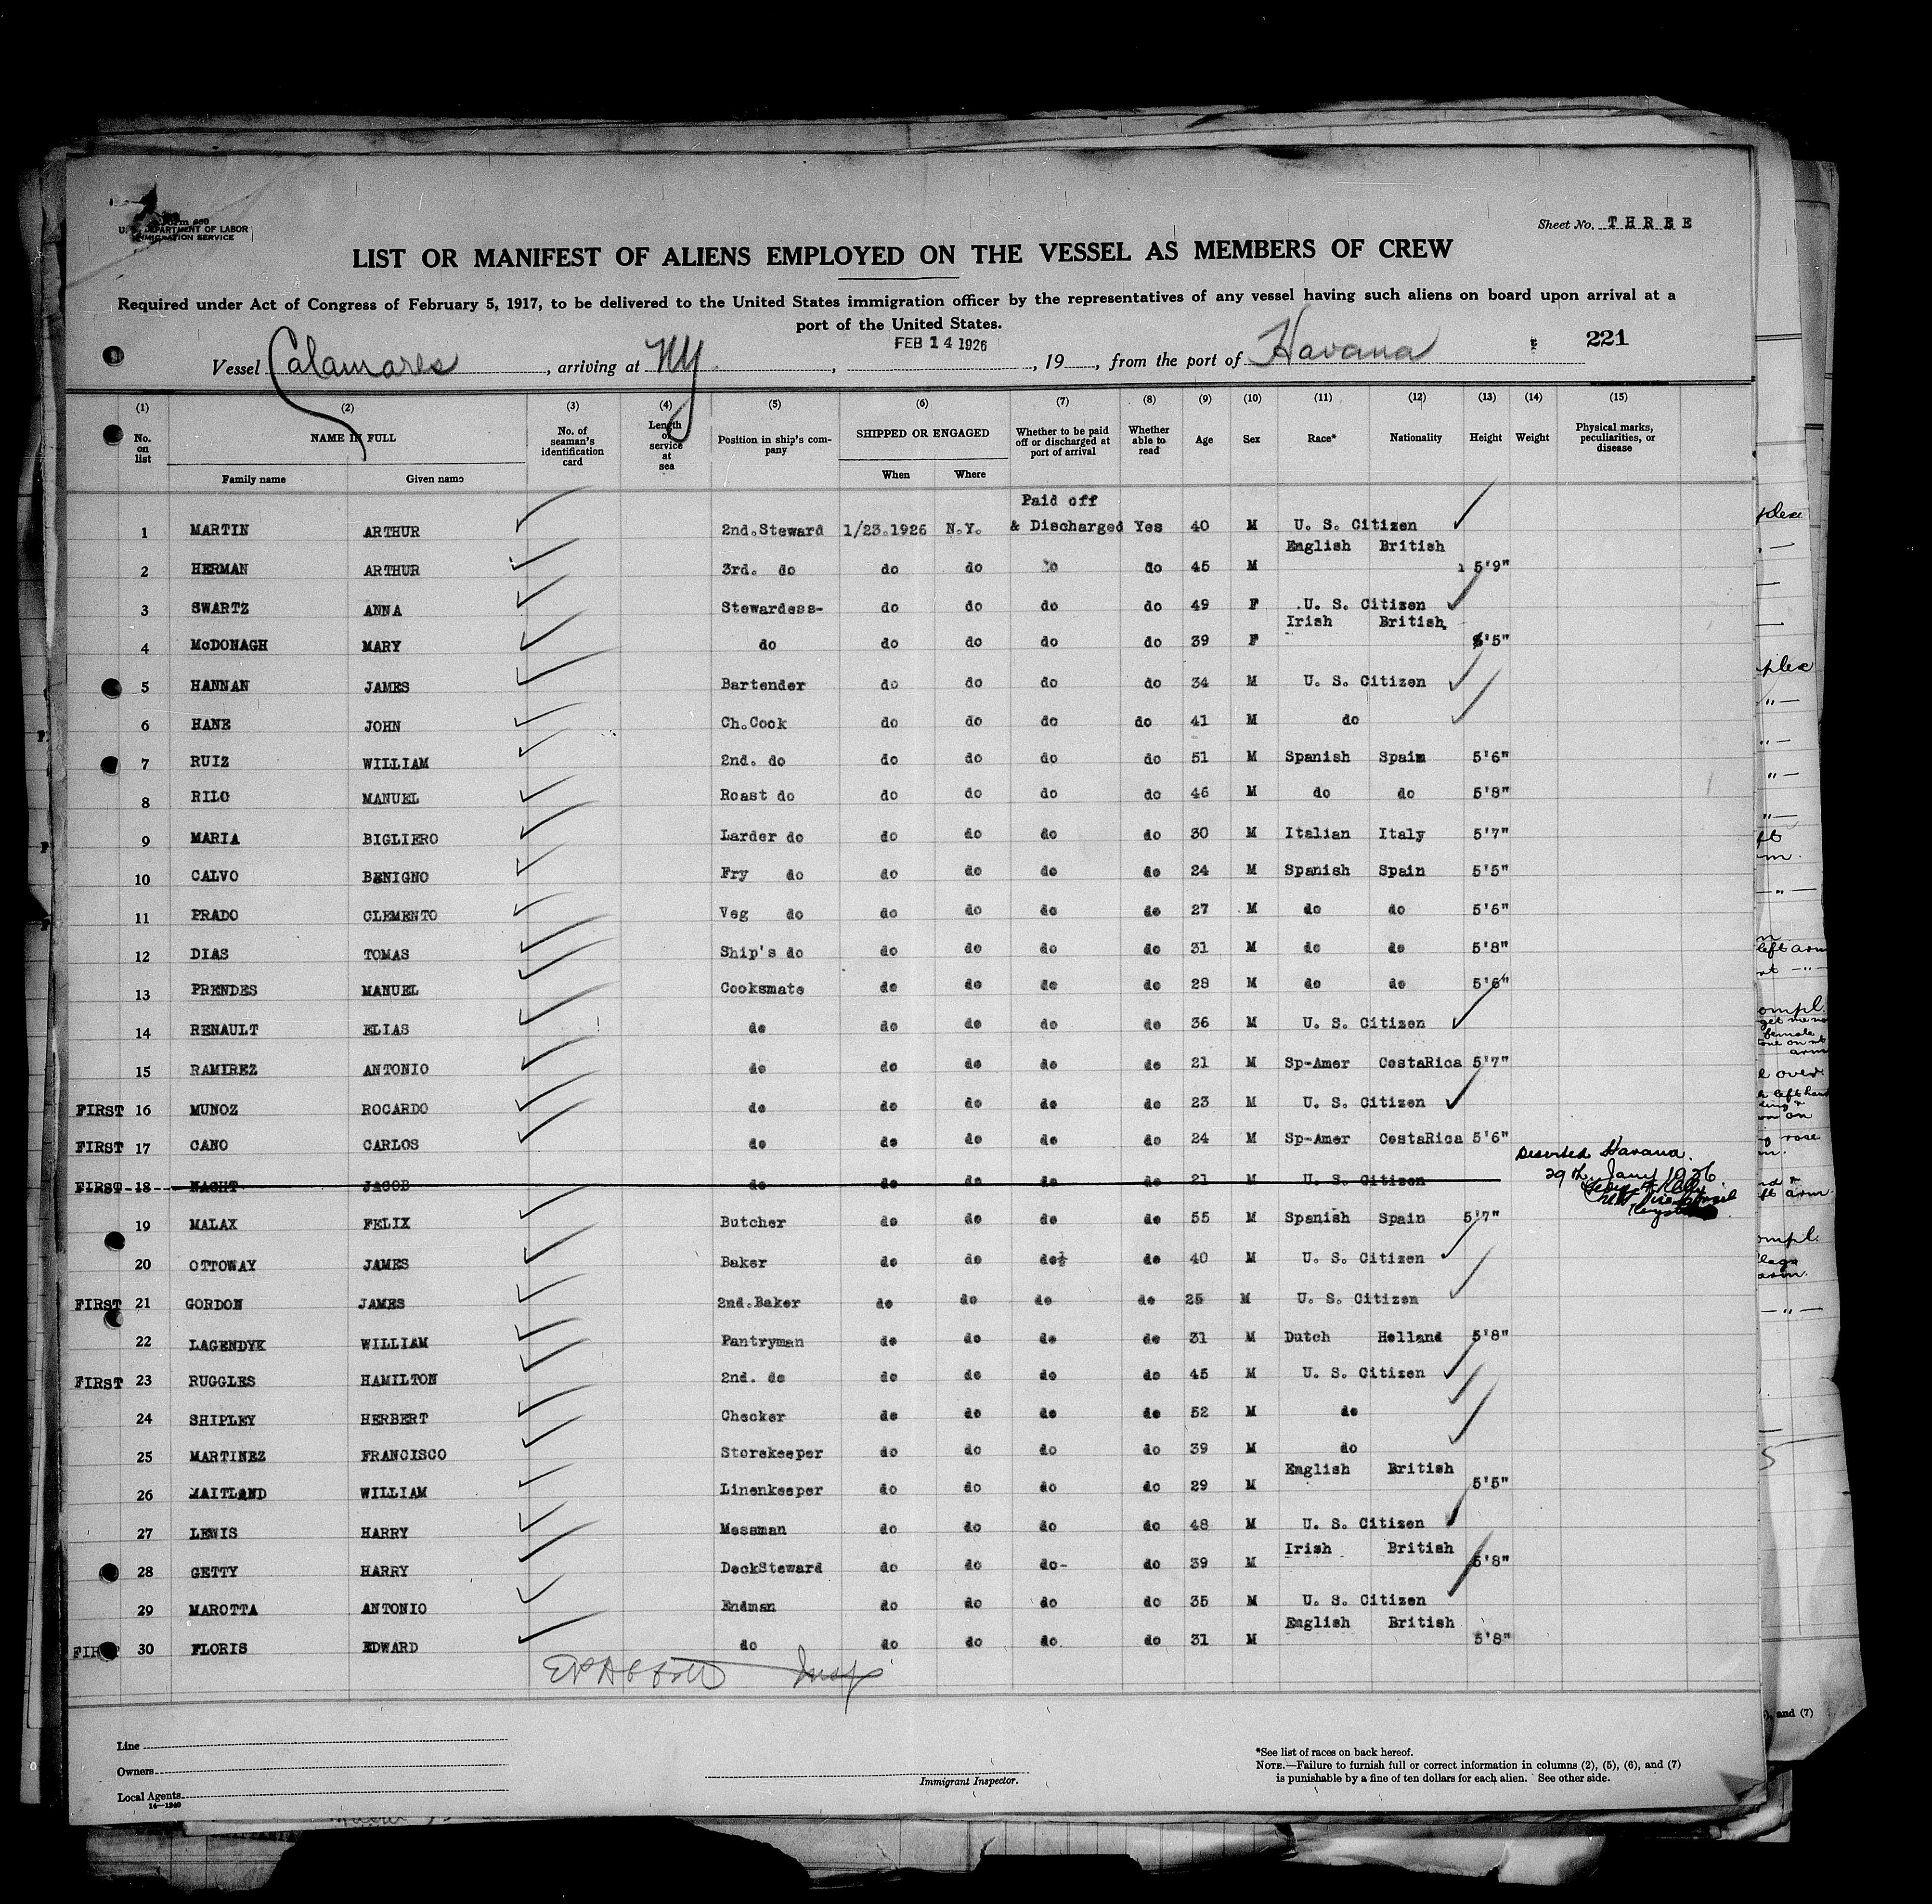 Form 680
U. S. DEPARTMENT OF LABOR
IMMIGRATION SERVICE
Sheet No. THREE
LIST OR MANIFEST OF ALIENS EMPLOYED ON THE VESSEL AS MEMBERS OF CREW
Required under Act of Congress of February 5, 1917, to be delivered to the United States immigration officer by the representatives of any vessel having such aliens on board upon arrival at a
port of the United States.
FEB 14 1926
221
Vessel Calamares, arriving at NY, , 19, from the port of Havana
(1) (2) (3) (4) (5) (6) (7) (8) (9) (10) (11) (12) (13) (14) (15)
No. on list NAME IN FULL No. of seaman's identification card Length of service at sea Position in ship's company SHIPPED OR ENGAGED Whether to be paid off or discharged at port of arrival Whether able to read Age Sex Race* Nationality Height Weight Physical marks, peculiarities, or disease
Family name Given name When Where
Paid off
1 MARTIN ARTHUR 2nd.Steward 1/23.1926 N.Y. & Discharged Yes 40 M U. S. Citizen
English British
2 HERMAN ARTHUR 3rd. do do do do do 45 M 5'9"
3 SWARTZ ANNA Stewardess- do do do do 49 F U. S. Citizen
Irish British
4 McDONAGH MARY do do do do do 39 F 5'5"
5 HANNAN JAMES Bartender do do do do 34 M U. S. Citizen
6 HANE JOHN Ch.Cook do do do do 41 M do
7 RUIZ WILLIAM 2nd. do do do do do 51 M Spanish Spain 5'6"
8 RILO MANUEL Roast do do do do do 46 M do do 5'8"
9 MARIA BIGLIERO Larder do do do do do 30 M Italian Italy 5'7"
10 CALVO BENIGNO Fry do do do do do 24 M Spanish Spain 5'5"
11 PRADO CLEMENTO Veg do do do do do 27 M do do 5'6"
12 DIAS TOMAS Ship's do do do do do 31 M do do 5'8"
13 PRENDES MANUEL Cooksmate do do do do 28 M do do 5'6"
14 RENAULT ELIAS do do do do do 36 M U. S. Citizen
15 RAMIREZ ANTONIO do do do do do 21 M Sp-Amer CostaRica 5'7"
FIRST 16 MUNOZ ROCARDO do do do do do 23 M U. S. Citizen
FIRST 17 CANO CARLOS do do do do do 24 M Sp-Amer CostaRica 5'6"
Deserted Havana.
FIRST 18 NACHT JACOB do do do do do 21 M U. S. Citizen 29th Jany 1926.
19 MALAX FELIX Butcher do do do do 55 M Spanish Spain 5'7"
20 OTTOWAY JAMES Baker do do do½ do 40 M U. S. Citizen
FIRST 21 GORDON JAMES 2nd.Baker do do do do 25 M U. S. Citizen
22 LAGENDYK WILLIAM Pantryman do do do do 31 M Dutch Holland 5'8"
FIRST 23 RUGGLES HAMILTON 2nd. do do do do do 45 M U. S. Citizen
24 SHIPLEY HERBERT Checker do do do do 52 M do
25 MARTINEZ FRANCISCO Storekeeper do do do do 39 M do
English British
26 MAITLAND WILLIAM Linenkeeper do do do do 29 M 5'5"
27 LEWIS HARRY Messman do do do do 48 M U. S. Citizen
Irish British
28 GETTY HARRY DeckSteward do do do- do 39 M 5'8"
29 MAROTTA ANTONIO Endman do do do do 35 M U. S. Citizen
English British
FIRST 30 FLORIS EDWARD do do do do do 31 M 5'8"
Insp
Line
Owners
Local Agents
14—1240
Immigrant Inspector.
*See list of races on back hereof.
NOTE.—Failure to furnish full or correct information in columns (2), (5), (6), and (7)
is punishable by a fine of ten dollars for each alien. See other side.
and (7)